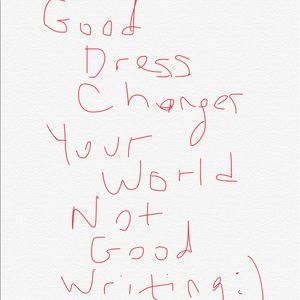 Good
Dress
Changer
Your
World
Not
Good
Writing:)